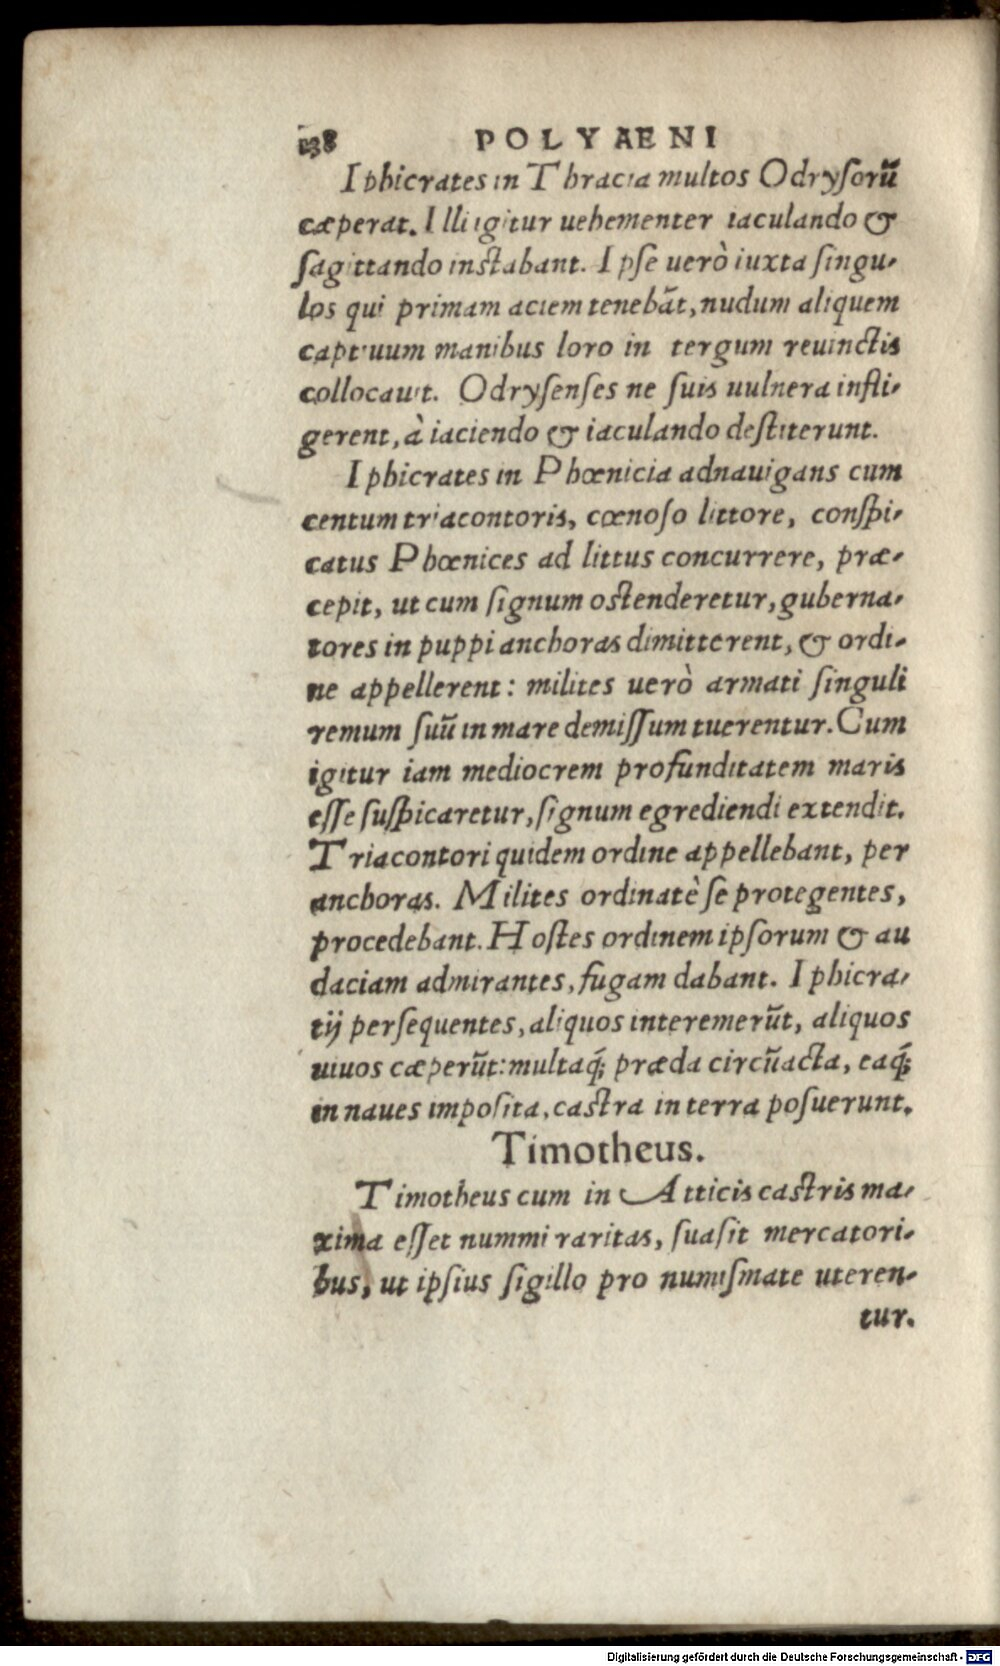 138 POLYAENI
Iphicrates in Thracia multos Odrysorũ
cæperat. Illi igitur uehementer iaculando &
sagittando instabant. Ipse uerò iuxta singu-
los qui primam aciem tenebãt, nudum aliquem
captiuum manibus loro in tergum reuinctis
collocauit. Odrysenses ne suis uulnera infli-
gerent, à iaciendo & iaculando destiterunt.
Iphicrates in Phœnicia adnauigans cum
centum triacontoris, cœnoso littore, conspi-
catus Phœnices ad littus concurrere, præ-
cepit, ut cum signum ostenderetur, guberna-
tores in puppi anchoras dimitterent, & ordi-
ne appellerent: milites uerò armati singuli
remum suũ in mare demissum tuerentur. Cum
igitur iam mediocrem profunditatem maris
esse suspicaretur, signum egrediendi extendit.
Triacontori quidem ordine appellebant, per
anchoras. Milites ordinatè se protegentes,
procedebant. Hostes ordinem ipsorum & au
daciam admirantes, fugam dabant. Iphicra-
tij persequentes, aliquos interemerũt, aliquos
uiuos cæperũt: multaq́; præda circũacta, eaq́;
in naues imposita, castra in terra posuerunt.
Timotheus.
Timotheus cum in Atticis castris ma-
xima esset nummi raritas, suasit mercatori-
bus, ut ipsius sigillo pro numismate uteren-
tur.
Digitalisierung gefördert durch die Deutsche Forschungsgemeinschaft - DFG